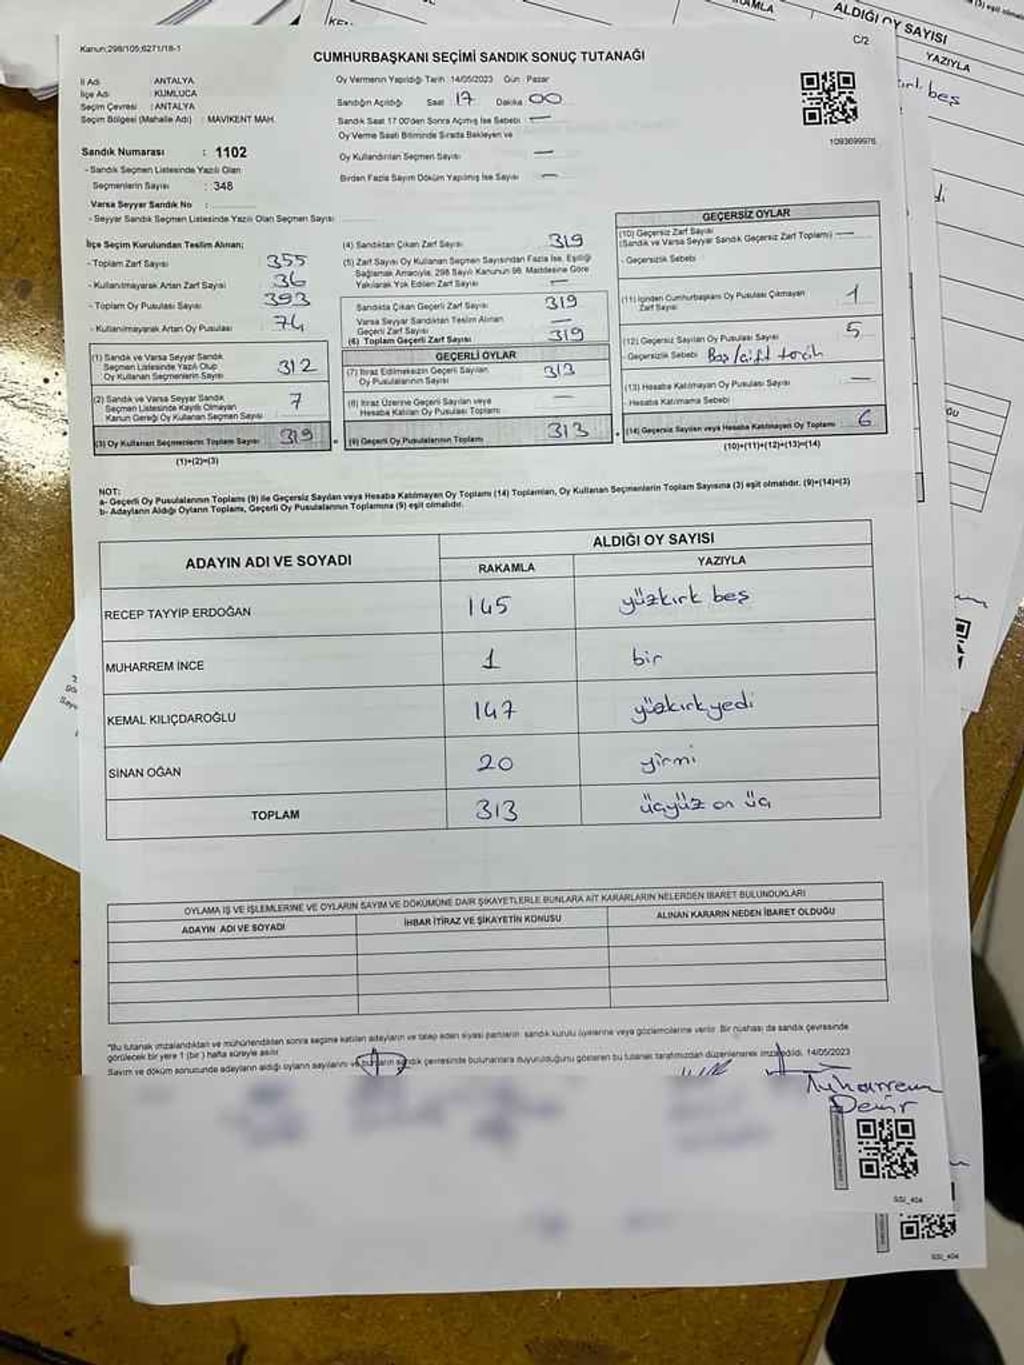 Kanun:298/105;6271/18-1
C/2
CUMHURBAŞKANI SEÇİMİ SANDIK SONUÇ TUTANAĞI
İl Adı : ANTALYA
İlçe Adı : KUMLUCA
Seçim Çevresi : ANTALYA
Seçim Bölgesi (Mahalle Adı) : MAVIKENT MAH.
Sandık Numarası : 1102
- Sandık Seçmen Listesinde Yazılı Olan
Seçmenlerin Sayısı : 348
Varsa Seyyar Sandık No :
- Seyyar Sandık Seçmen Listesinde Yazılı Olan Seçmen Sayısı
Oy Vermenin Yapıldığı Tarih 14/05/2023 Gün : Pazar
Sandığın Açıldığı Saat 17 Dakika 00
Sandık Saat 17:00'den Sonra Açmış İse Sebebi : —
Oy Verme Saati Bitiminde Sırada Bekleyen ve
Oy Kullandırılan Seçmen Sayısı —
Birden Fazla Sayım Döküm Yapılmış İse Sayısı —
1093699976
İlçe Seçim Kurulundan Teslim Alınan;
- Toplam Zarf Sayısı 355
- Kullanılmayarak Artan Zarf Sayısı 36
- Toplam Oy Pusulası Sayısı 393
- Kullanılmayarak Artan Oy Pusulası 74
(1) Sandık ve Varsa Seyyar Sandık
Seçmen Listesinde Yazılı Olup
Oy Kullanan Seçmenlerin Sayısı 312
(2) Sandık ve Varsa Seyyar Sandık
Seçmen Listesinde Kayıtlı Olmayan
Kanun Gereği Oy Kullanan Seçmen Sayısı 7
(3) Oy Kullanan Seçmenlerin Toplam Sayısı 319
(1)+(2)=(3)
(4) Sandıktan Çıkan Zarf Sayısı 319
(5) Zarf Sayısı Oy Kullanan Seçmen Sayısından Fazla İse, Eşitliği
Sağlamak Amacıyla, 298 Sayılı Kanunun 98. Maddesine Göre
Yakılarak Yok Edilen Zarf Sayısı —
Sandıkta Çıkan Geçerli Zarf Sayısı 319
Varsa Seyyar Sandıktan Teslim Alınan
Geçerli Zarf Sayısı —
(6) Toplam Geçerli Zarf Sayısı 319
GEÇERLİ OYLAR
(7) İtiraz Edilmeksizin Geçerli Sayılan
Oy Pusulalarının Sayısı 313
(8) İtiraz Üzerine Geçerli Sayılan veya
Hesaba Katılan Oy Pusulası Toplamı —
(9) Geçerli Oy Pusulalarının Toplamı 313
GEÇERSİZ OYLAR
(10) Geçersiz Zarf Sayısı
(Sandık ve Varsa Seyyar Sandık Geçersiz Zarf Toplamı) —
- Geçersizlik Sebebi
(11) İçinden Cumhurbaşkanı Oy Pusulası Çıkmayan
Zarf Sayısı 1
(12) Geçersiz Sayılan Oy Pusulası Sayısı 5
- Geçersizlik Sebebi Boş/çift tercih
(13) Hesaba Katılmayan Oy Pusulası Sayısı —
- Hesaba Katılmama Sebebi
(14) Geçersiz Sayılan veya Hesaba Katılmayan Oy Toplamı 6
(10)+(11)+(12)+(13)=(14)
NOT:
a- Geçerli Oy Pusulalarının Toplamı (9) ile Geçersiz Sayılan veya Hesaba Katılmayan Oy Toplamı (14) Toplamları, Oy Kullanan Seçmenlerin Toplam Sayısına (3) eşit olmalıdır. (9)+(14)=(3)
b- Adayların Aldığı Oyların Toplamı, Geçerli Oy Pusulalarının Toplamına (9) eşit olmalıdır.
ADAYIN ADI VE SOYADI
ALDIĞI OY SAYISI
RAKAMLA YAZIYLA
RECEP TAYYİP ERDOĞAN 145 yüzkırk beş
MUHARREM İNCE 1 bir
KEMAL KILIÇDAROĞLU 147 yüzkırkyedi
SİNAN OĞAN 20 yirmi
TOPLAM 313 üçyüz on üç
OYLAMA İŞ VE İŞLEMLERİNE VE OYLARIN SAYIM VE DÖKÜMÜNE DAİR ŞİKAYETLERLE BUNLARA AİT KARARLARIN NELERDEN İBARET BULUNDUKLARI
ADAYIN ADI VE SOYADI İHBAR İTİRAZ VE ŞİKAYETİN KONUSU ALINAN KARARIN NEDEN İBARET OLDUĞU
"Bu tutanak imzalandıktan ve mühürlendikten sonra seçime katılan adayların ve talep eden siyasi partilerin sandık kurulu üyelerine veya gözlemcilerine verilir. Bir nüshası da sandık çevresinde
görülecek bir yere 1 (bir) hafta süreyle asılır.
Sayım ve döküm sonucunda adayların aldığı oyların sayılarını ve bunların sandık çevresinde bulunanlara duyurulduğunu gösteren bu tutanak tarafımızdan düzenlenerek imzalandı. 14/05/2023
Muharrem
Demir
SSI_404
SSI_404
ALDIĞI OY SAYISI
YAZIYLA
beş